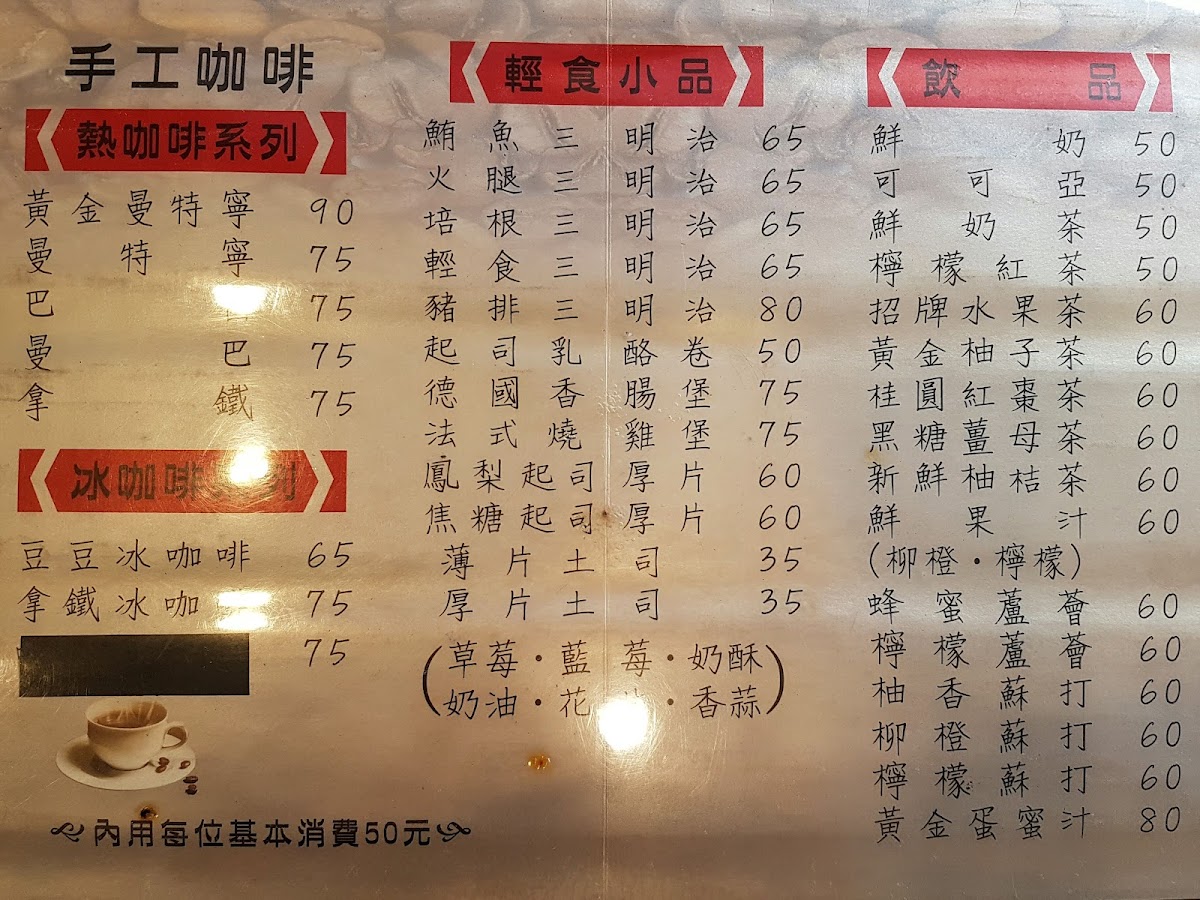 手工咖啡
熱咖啡系列
黃金曼特寧 90
曼特寧 75
巴 75
曼巴 75
拿鐵 75
冰咖啡列
豆豆冰咖啡 65
拿鐵冰咖 75
75
內用每位基本消費50元
輕食小品
鮪魚三明治 65
火腿三明治 65
培根三明治 65
輕食三明治 65
豬排三明治 80
起司乳酪卷 50
德國香腸堡 75
法式燒雞堡 75
鳳梨起司厚片 60
焦糖起司厚片 60
薄片土司 35
厚片土司 35
(草莓·藍莓·奶酥
奶油·花·香蒜)
飲品
鮮奶 50
可可亞 50
鮮奶茶 50
檸檬紅茶 50
招牌水果茶 60
黃金柚子茶 60
桂圓紅棗茶 60
黑糖薑母茶 60
新鮮柚桔茶 60
鮮果汁 60
(柳橙·檸檬)
蜂蜜蘆薈 60
檸檬蘆薈 60
柚香蘇打 60
柳橙蘇打 60
檸檬蘇打 60
黃金蛋蜜汁 80